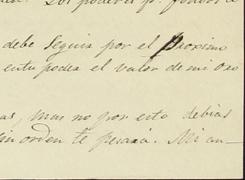 los poderes p.
debe seguir por el Proximo
en tu poder el valor de mi Oro
as, mas no por esto debias
sin orden te pesará. Mi an-